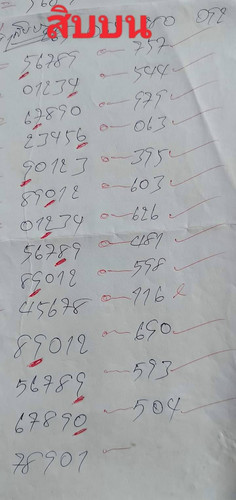 สิบบน
092
56789 757
01234 544
67890 979
23456 063
90123 395
89012 603
01234 626
56789 481
89012 598
45678 116
89012 690
56789 593
67890 504
78901